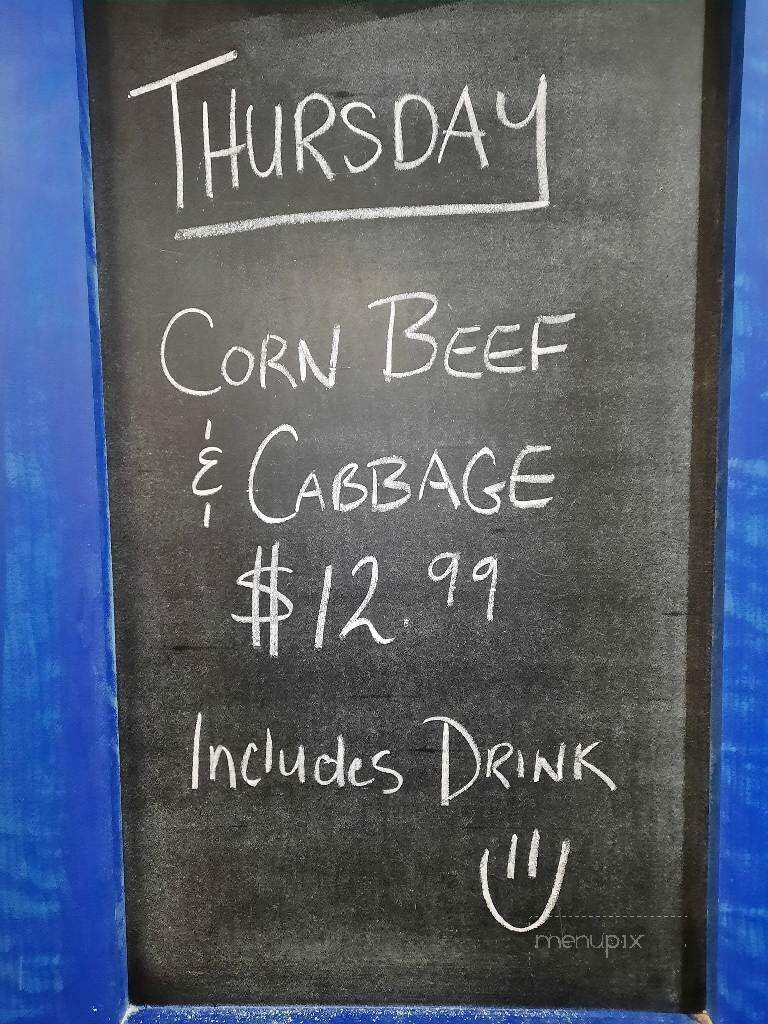 THURSDAY
CORN BEEF
& CABBAGE
$12.99
Includes DRINK
menupix